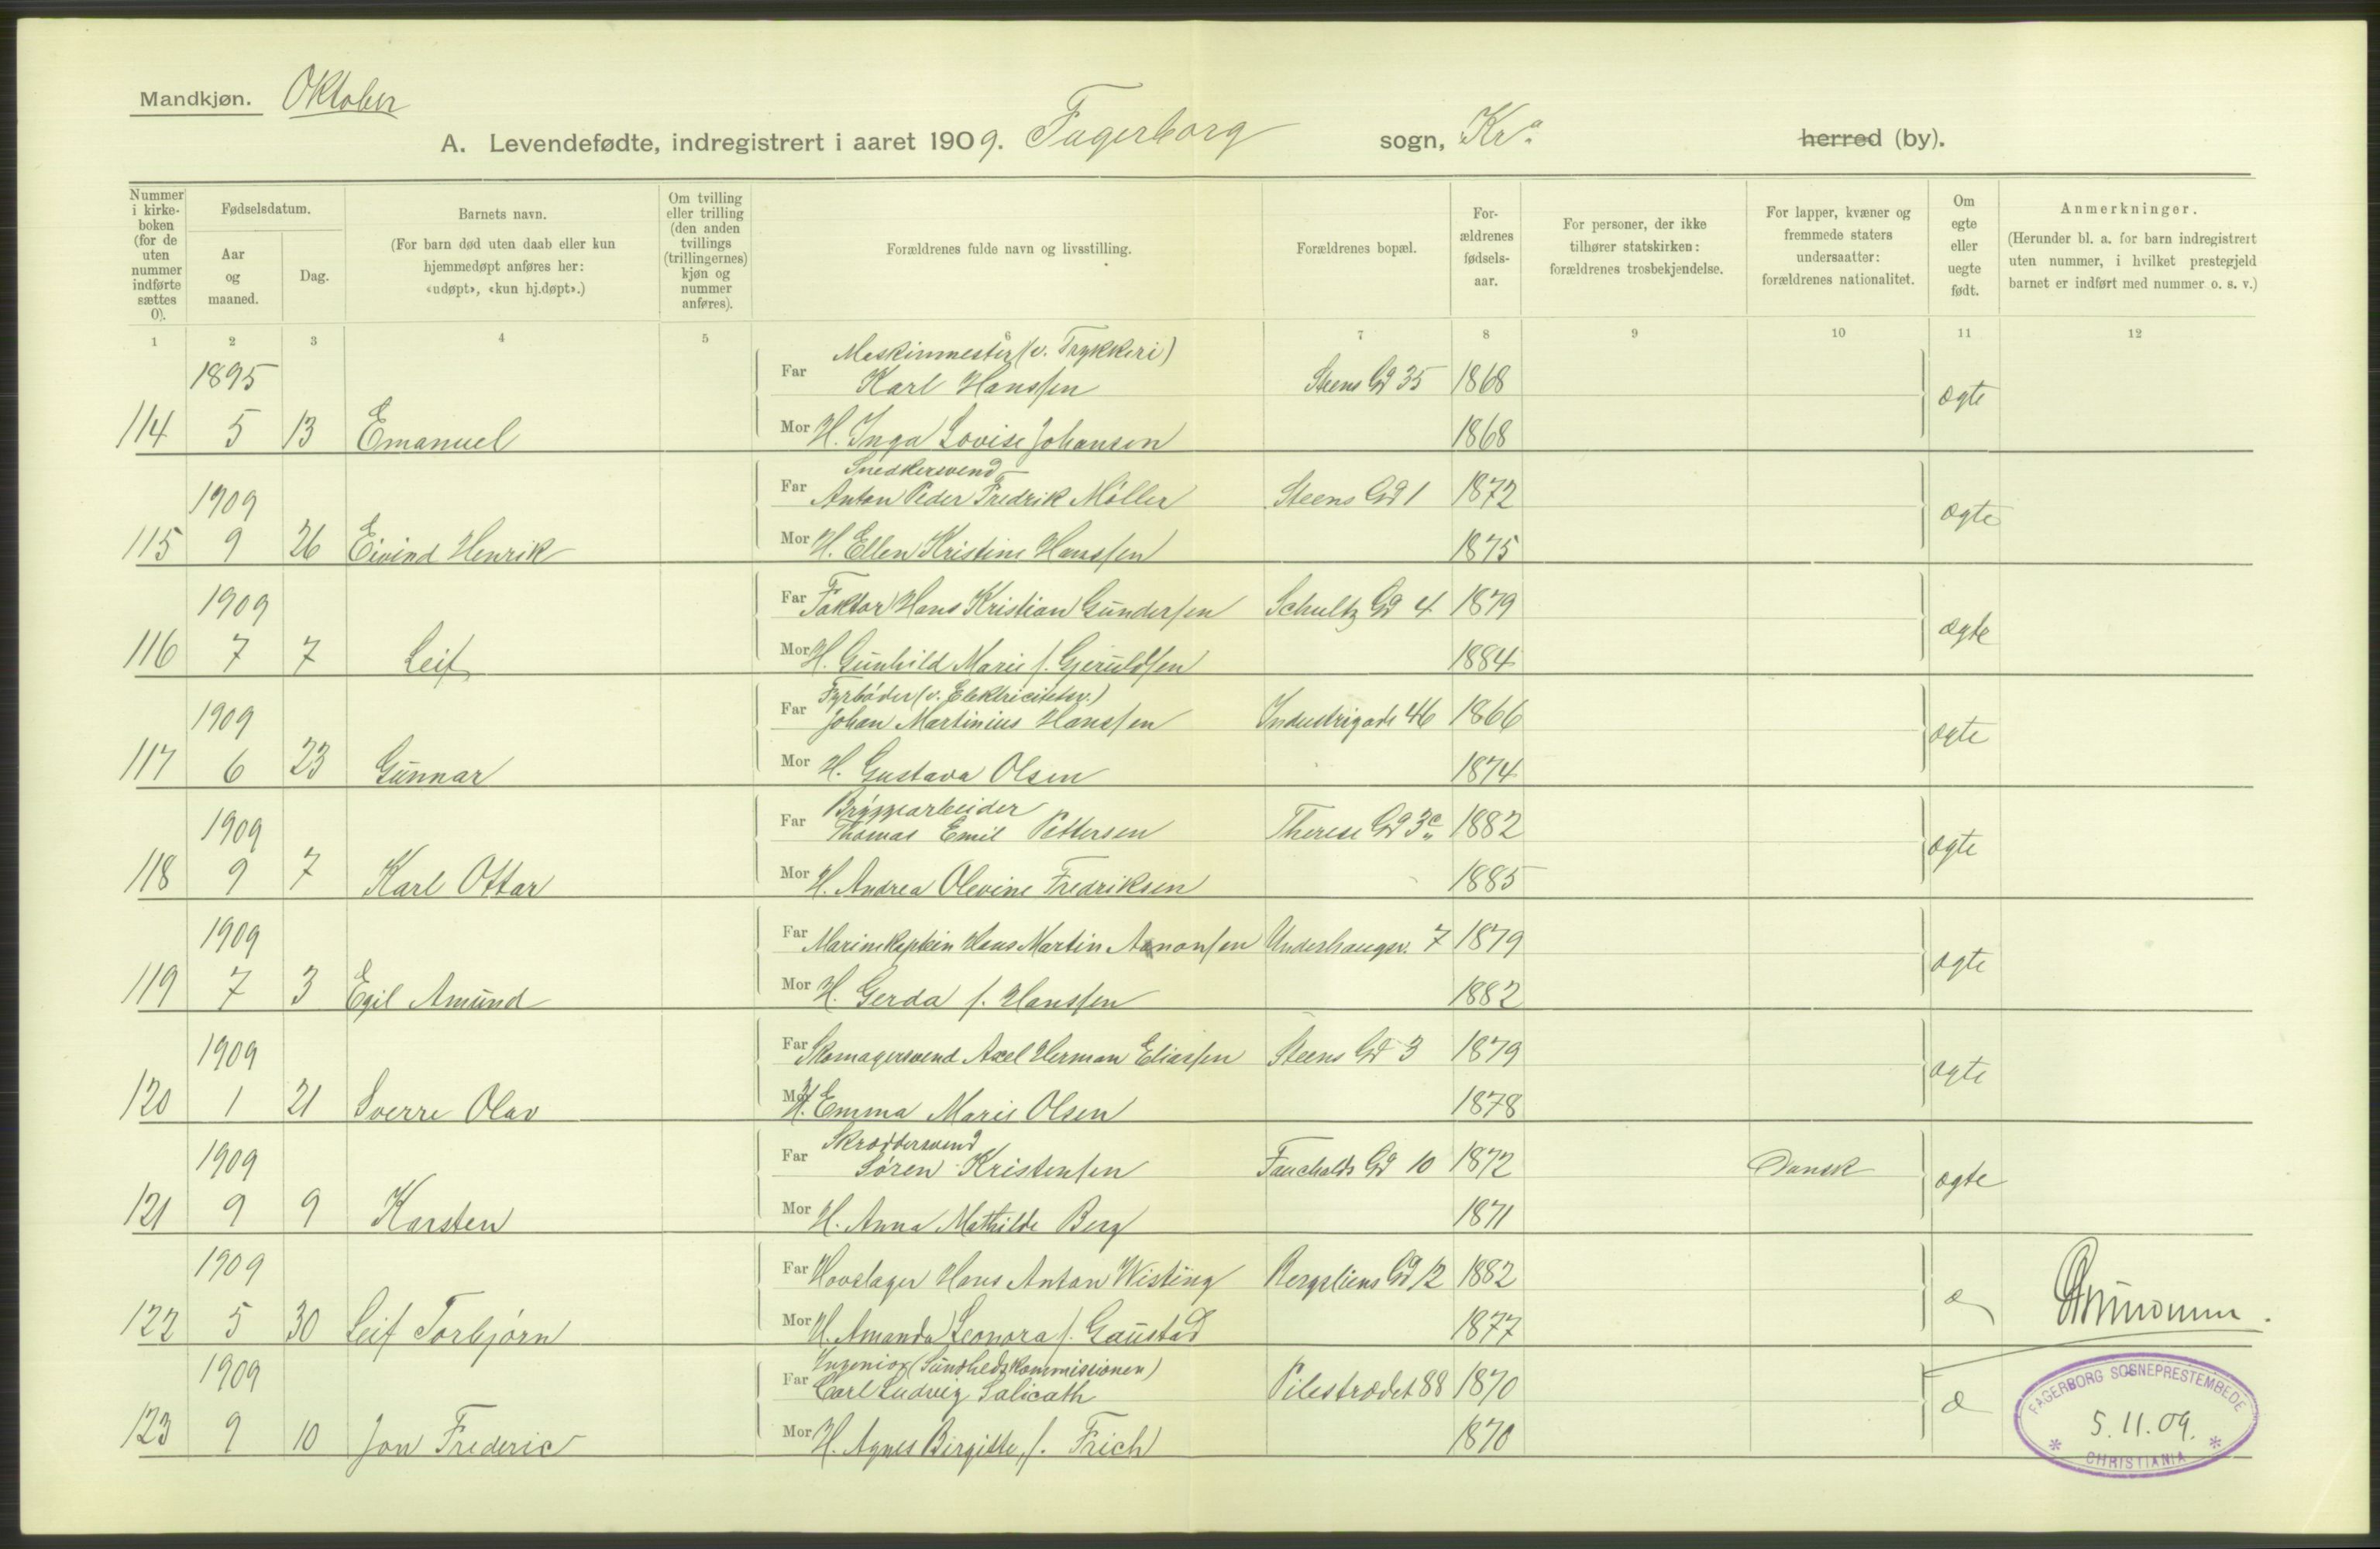 Mandkjøn. Oktober
A. Levendefødte, indregistrert i aaret 1909. Fagerborg sogn, Kra herred (by).
Nummer i kirkeboken (for de uten nummer indførte sættes 0).
Fødselsdatum.
Aar og maaned.
Dag.
Barnets navn.
(For barn død uten daab eller kun hjemmedøpt anføres her: «udøpt», «kun hj.døpt».)
Om tvilling eller trilling (den anden tvillings (trillingernes) kjøn og nummer anføres).
Forældrenes fulde navn og livsstilling.
Forældrenes bopæl.
Forældrenes fødselsaar.
For personer, der ikke tilhører statskirken: forældrenes trosbekjendelse.
For lapper, kvæner og fremmede staters undersaatter: forældrenes nationalitet.
Om egte eller uegte født.
Anmerkninger.
(Herunder bl. a. for barn indregistrert uten nummer, i hvilket prestegjeld barnet er indført med nummer o. s. v.)
1 2 3 4 5 6 7 8 9 10 11 12
Maskinmester (v. Trykkeri)
1895 Far Karl Hanssen Steens Gd 35 1868 ægte
114 5 13 Emanuel Mor H. Inga Lovise Johansen 1868
Snedkersvend
1909 Far Anton Peder Fredrik Møller Steens Gd 1 1872 ægte
115 9 26 Eivind Henrik Mor H. Ellen Kristine Hanssen 1875
1909 Far Faktor Hans Kristian Gundersen Schultz Gd 4 1879 ægte
116 7 7 Leif Mor H. Gunhild Marie f. Gjeruldsen 1884
Fyrbøder (v. Elektricitetsv.)
1909 Far Johan Martinius Hanssen Industrigade 46 1866 ægte
117 6 23 Gunnar Mor H. Gustava Olsen 1874
Bryggearbeider
1909 Far Thomas Emil Pettersen Therese Gd 3c 1882 ægte
118 9 7 Karl Ottar Mor H. Andrea Olevine Fredriksen 1885
1909 Far Marinekaptein Hans Martin Aanonsen Underhaugsv. 7 1879 ægte
119 7 3 Egil Amund Mor H. Gerda f. Hanssen 1882
1909 Far Skomagersvend Axel Herman Eliassen Steens Gd 3 1879 ægte
120 1 21 Sverre Olav Mor H. Emma Marie Olsen 1878
Skræddersvend
1909 Far Søren Kristensen Fauchalds Gd 10 1872 Dansk ægte
121 9 9 Karsten Mor H. Anna Mathilde Berg 1871
1909 Far Hovslager Hans Anton Wisting Bergsliens Gd 12 1882 æ
122 5 30 Leif Torbjørn Mor H. Amanda Leonora f. Gaustad 1877
Ingeniør (Sundhedskommissionen)
1909 Far Carl Ludvig Salicath Pilestrædet 88 1870 æ
123 9 10 Jon Frederic Mor H. Agnes Birgitte, f. Frich 1870
FAGERBORG SOGNEPRESTEMBEDE
5.11.09.
* CHRISTIANIA *